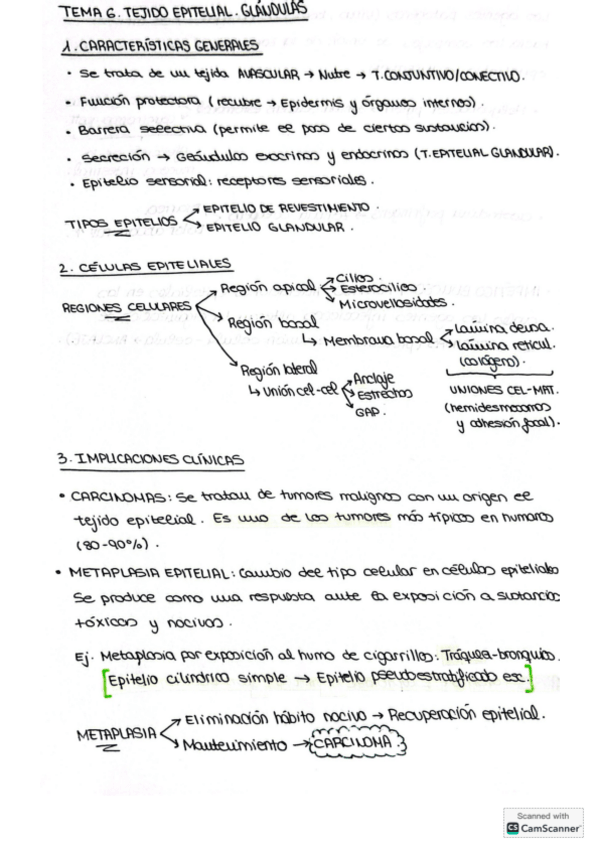 TEMA 6. TEJIDO EPITELIAL. GLÁNDULAS
1. CARACTERÍSTICAS GENERALES
• Se trata de un tejido AVASCULAR → Nutre → T. CONJUNTIVO/CONECTIVO.
• Función protectora (recubre → Epidermis y órganos internos).
• Barrera selectiva (permite el paso de ciertas sustancias).
• Secreción → Glándulas exocrinas y endocrinas (T. EPITELIAL GLANDULAR).
• Epitelio sensorial: receptores sensoriales.
TIPOS EPITELIOS
EPITELIO DE REVESTIMIENTO.
EPITELIO GLANDULAR.
2. CÉLULAS EPITELIALES
REGIONES CELULARES
Región apical
Cilios.
Estereocilios.
Microvellosidades.
Región basal
↳ Membrana basal
Lámina densa.
Lámina reticul.
(colágeno).
UNIONES CEL-MAT.
(hemidesmosomas
y adhesión focal).
Región lateral
↳ Unión cel-cel
Anclaje
Estrechas
GAP.
3. IMPLICACIONES CLÍNICAS
• CARCINOMAS: Se tratan de tumores malignos con un origen el
tejido epitelial. Es uno de los tumores más típicos en humanos
(80-90%).
• METAPLASIA EPITELIAL: Cambio del tipo celular en células epiteliales
Se produce como una respuesta ante la exposición a sustancias
tóxicas y nocivas.
Ej. Metaplasia por exposición al humo de cigarrillos: Tráquea-bronquios.
[Epitelio cilíndrico simple → Epitelio pseudoestratificado esc.]
METAPLASIA
Eliminación hábito nocivo → Recuperación epitelial.
Mantenimiento → CARCINOMA.
Scanned with
CS CamScanner